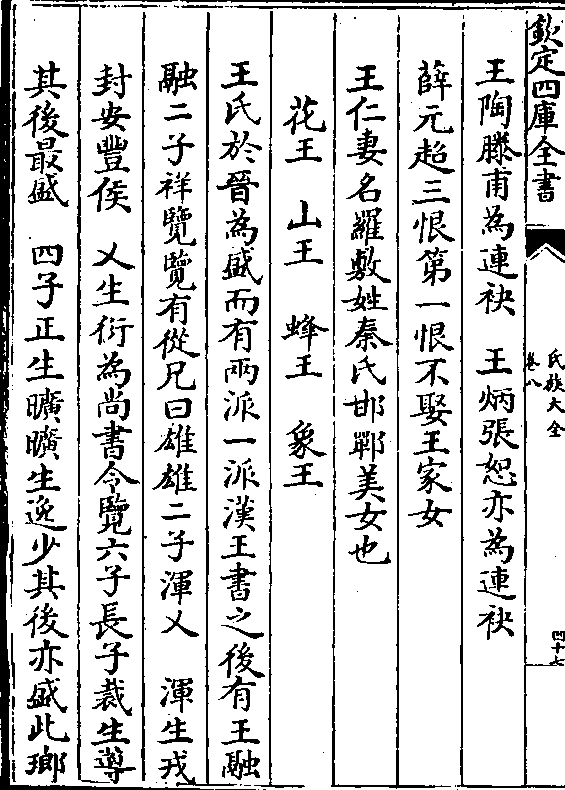 欽定四庫全書
氏族大全
卷八
四十七
王陶滕甫為連袂　王炳張恕亦為連袂
薛元超三恨第一恨不娶王家女
王仁妻名羅敷姓秦氏邯鄲美女也
花王　山王　蜂王　象王
王氏於晉為盛而有兩派一派漢王書之後有王融
融二子祥覽覽有從兄曰雄雄二子渾乂　渾生戎
封安豐侯　乂生衍為尚書令覽六子長子裁生導
其後最盛　四子正生曠曠生逸少其後亦盛此瑯